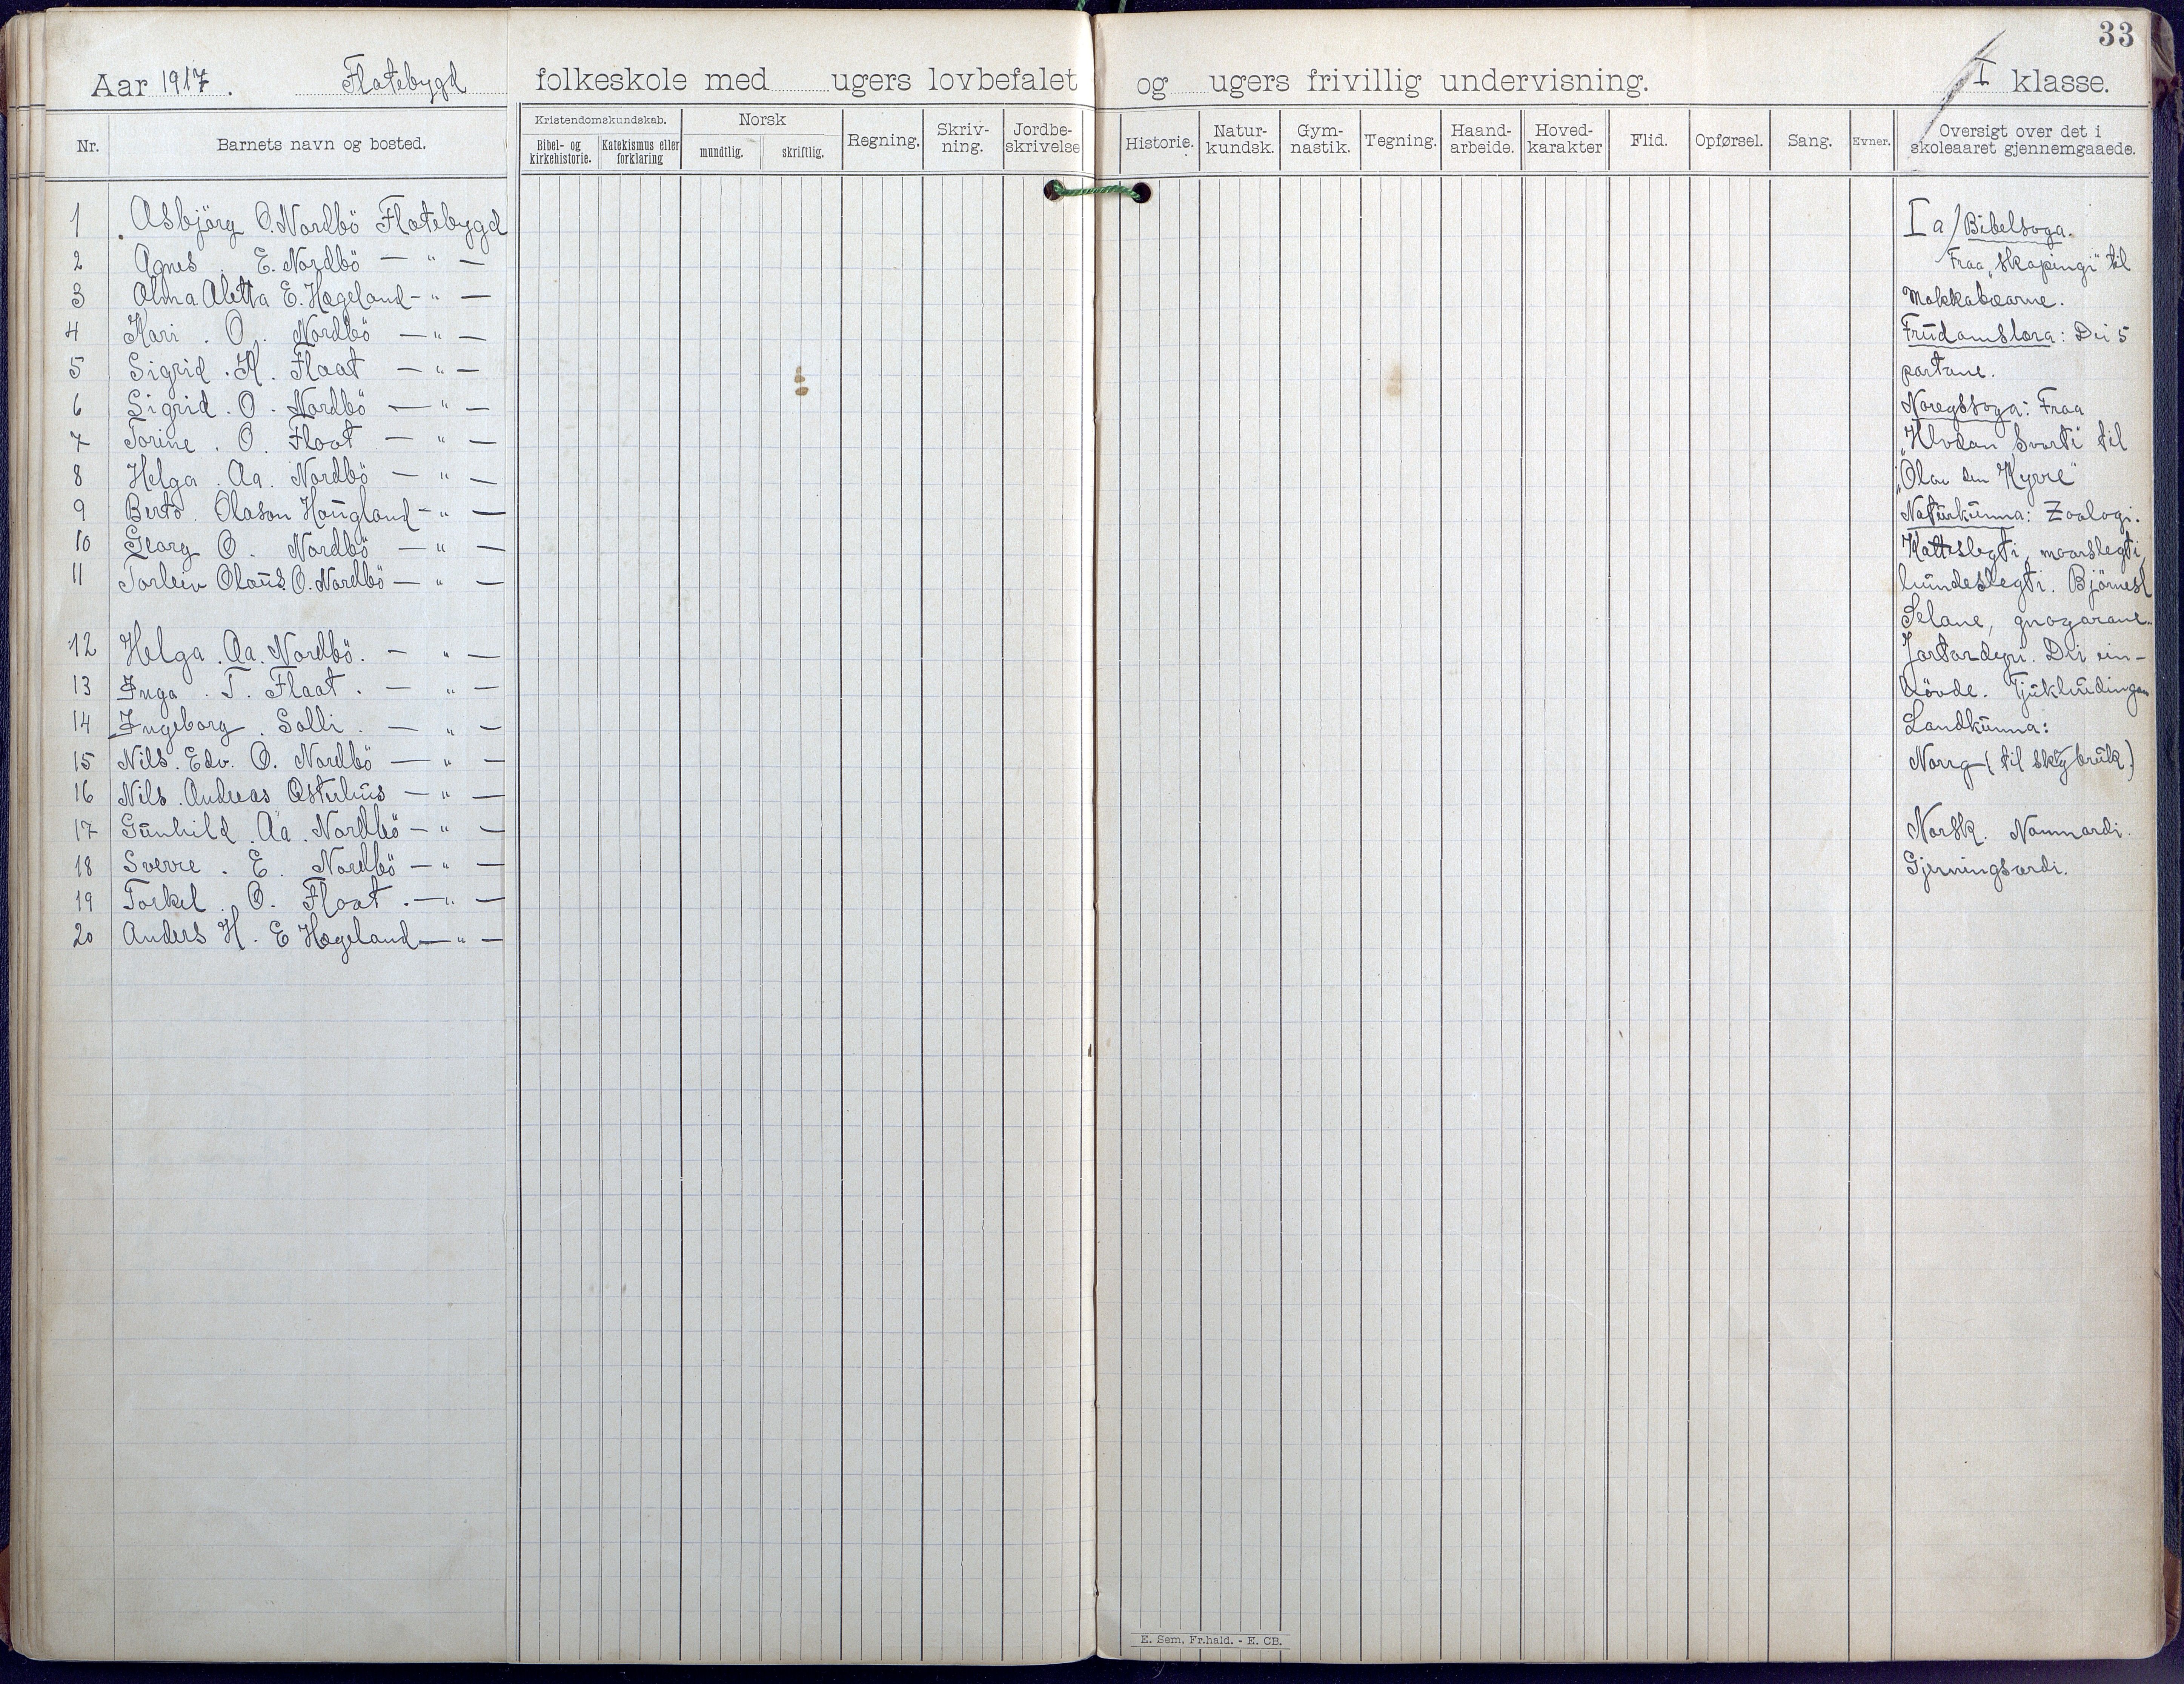 33
Aar 1917. Flatebygd folkeskole med ugers lovbefalet og ugers frivillig undervisning. I klasse.
Nr. Barnets navn og bosted. Kristendomskundskab. Bibel- og kirkehistorie. Katekismus eller forklaring Norsk mundtlig. skriftlig. Regning. Skriv-ning. Jordbe-skrivelse Historie. Natur-kundsk. Gym-nastik. Tegning. Haand-arbeide. Hoved-karakter Flid. Opførsel. Sang. Evner. Oversigt over det i skoleaaret gjennemgaaede.
1 Asbjörg O. Nordbö Flatebygd
2 Agnes E. Nordbö — " —
3 Alma Aletta E. Hægeland - " —
4 Kari . O . Nordbö — " —
5 Sigrid . K . Flaat — " —
6 Sigrid . O . Nordbö — " —
7 Torine . O . Flaat — " —
8 Helga . Aa . Nordbö — " —
9 Berto . Olason Haugland - " —
10 Georg O . Nordbö — " —
11 Torleiv Olaus O. Nordbö — " —
12 Helga . Aa. Nordbö. — " —
13 Inga . T. Flaat . — " —
14 Ingeborg . Solli . — " —
15 Nils. Edv. O. Nordbö — " —
16 Nils . Andreas — " —
17 Gunhild . Aa . Nordbö — " —
18 Sverre . E . Nordbö — " —
19 Torkel . O. Flaat . — " —
20 Anders H. E Hægeland — " —
I a/ Bibelsoga.
Fraa „skapingi" til
Makkabæarne.
Frudomslæra: Dei 5
partane.
Noregssoga: Fraa
„Hlvdan Svarti" til
„Olav den Kyrre"
Naturkunna: Zoologi.
Katteslegti, maarslegti,
hundeslegti. Björnesl
Selane, gnagarane.
Jortardyri. Dei ein-
hövde. Tjukhudingan
Landkunna:
Norrg (til skogbruk.)
Norsk. Namnordi.
Gjerningsordi.
E. Sem, Fr.hald. - E. CB.